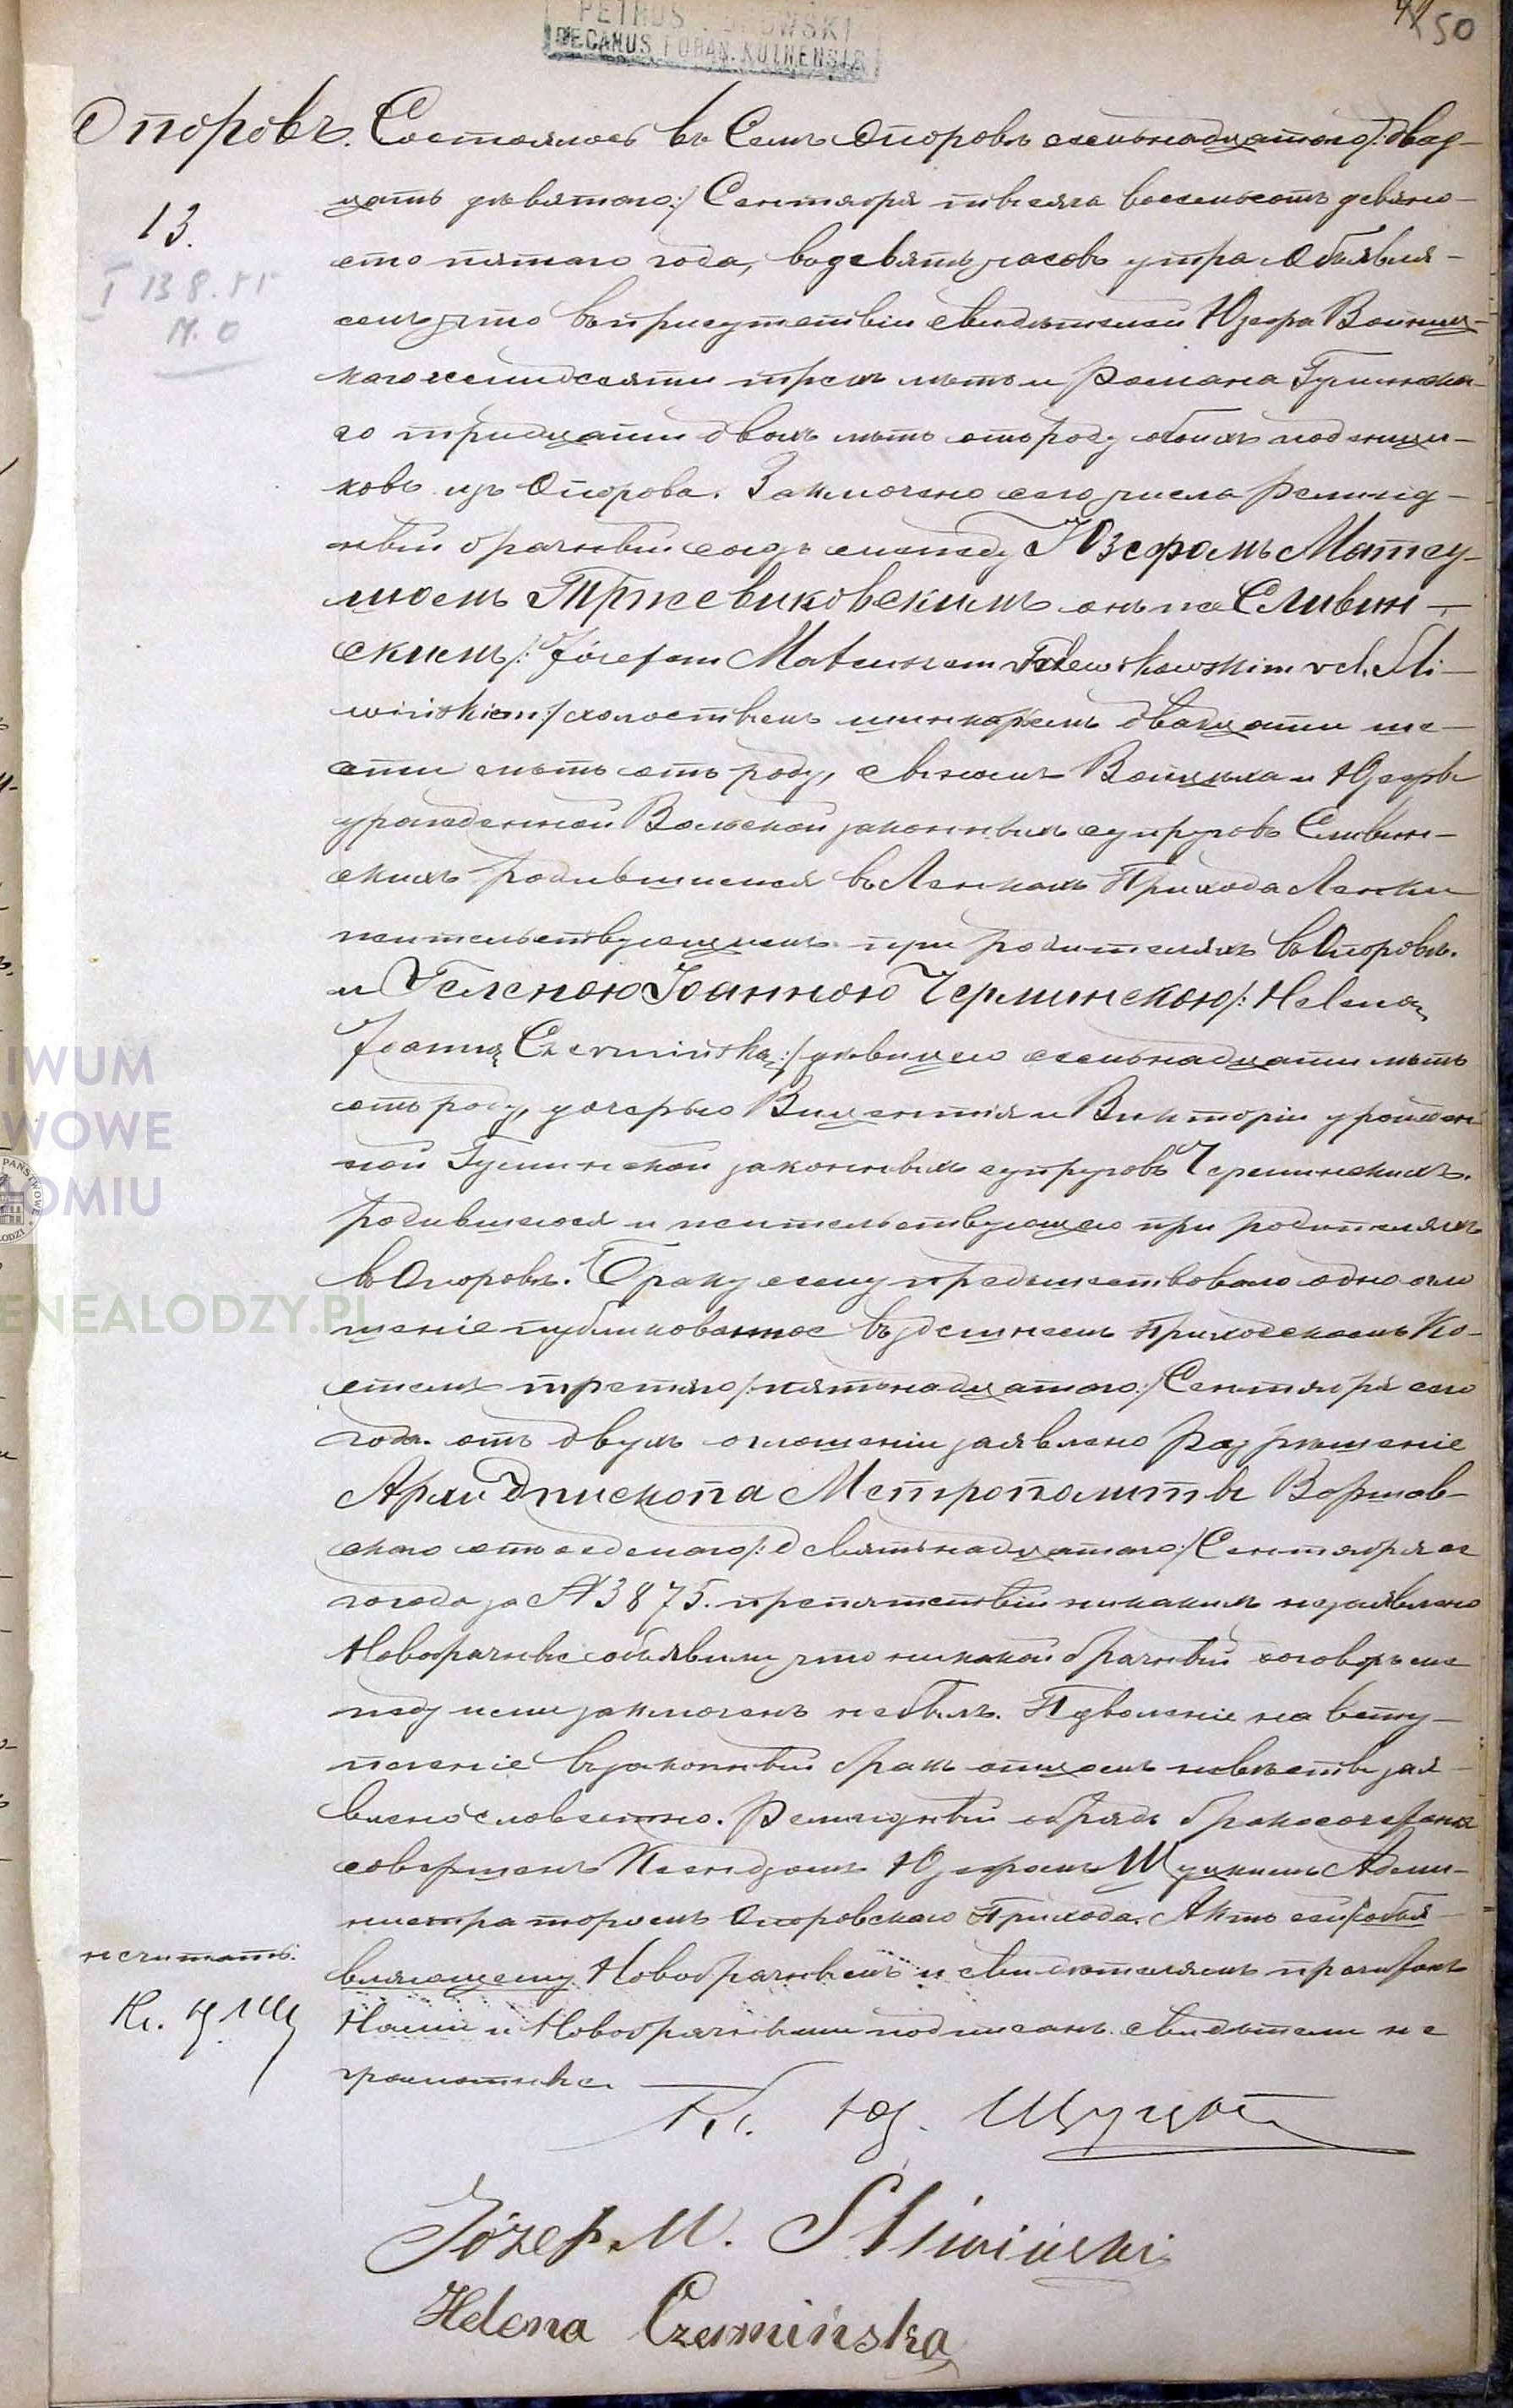 50
DECANUS FORAN. KUTNENSIS
Опоровъ. Состоялось въ Селѣ Опоровѣ семьнадцатаго /:двад-
цать девятаго:/ Сентября тысяча восемьсотъ девяно-
сто пятаго года, въ девять часовъ утра. Объявля-
емъ, что въ присутствіи свидѣтелей Юзефа Войниц-
каго семидесяти трехъ лѣтъ и Романа Гуминска-
го тридцати двохъ лѣтъ отъ роду обоихъ поденщи-
ковъ изъ Опорова. Заключено сего числа религіоз-
ный брачный союзъ между Юзефомъ Матеу-
шомъ Тржевиковскимъ онъ же Сливин-
скимъ /: Józefem Mateuszem vel. Śli-
wińskiem:/ холостымъ двадцати ше-
сти лѣтъ отъ роду, сыномъ Войцѣха и Юзефы
урожденной Вольской законныхъ супруговъ Сливин-
скихъ родившимся въ Ленкахъ Прихода Ленки
жительствующимъ при родителяхъ въ Опоровѣ.
и Геленою Іоанною Черминскою /: Heleną
Joanną Czermińską :/ дѣвицею семьнадцати лѣтъ
отъ роду, дочерью Викентія и Викторіи урожден-
ной Гуминской законныхъ супруговъ Черминскихъ.
родившеюся и жительствующею при родителяхъ
въ Опоровѣ. Браку сему предшествовало одно огла-
шеніе публикованное въ здешнемъ Приходскомъ Ко-
стелѣ третяго /:пятьнадцатаго:/ Сентября сего
года. отъ двухъ оглашеній заявлено разрѣшеніе
Архиепископа Метрополиты Варшав-
скаго отъ седьмаго /: девятьнадцатаго:/ Сентября се-
го года за N 3875. препятствій никакихъ не заявлено
Новобрачные объявили, что никакой брачный договоръ ме-
жду ними заключенъ не былъ. Позволеніе на всту-
пленіе въ законный бракъ отцемъ невѣсты зая-
влено словестно. Религіозный обрядъ бракосочетанія
совершенъ Ксендзомъ Юзефомъ Щуцкимъ Адми-
нистраторомъ Опоровскаго Прихода. Актъ сей /объя-
вляющему Новобрачнымъ и свидѣтелямъ прочитанъ
Нами и Новобрачными подписанъ. свидѣтели не
грамотные.
13.
I 13 8.
не считать.
Кс. Ю. Щ
Кс. Юз. Щуцкій
Józef M. Śliwiński
Helena Czermińska
IWUM
WOWE
OMIU
ENEALODZY.PL